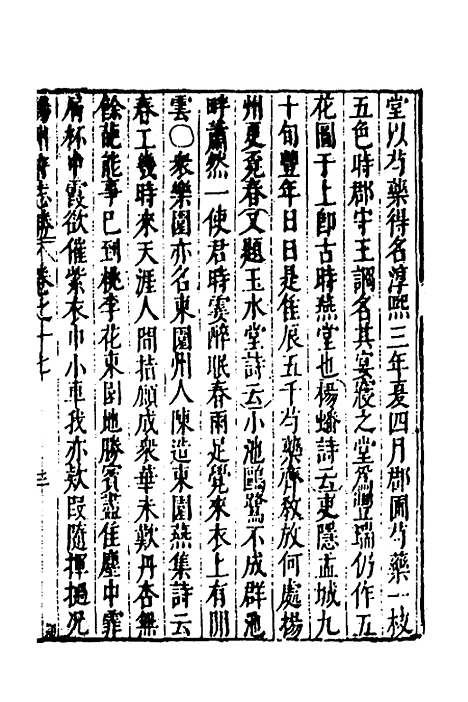 堂以芍藥得名淳熙三年夏四月郡圃芍藥一枝
五色時郡守王詷名其宴寢之堂爲豐瑞仍作五
花圖于上卽古時燕堂也楊蟠詩云吏隱孟城九
十旬豐年日日是佳辰五千芍藥齊教放何處揚
州更覓春又題玉水堂詩云小池鷗鷺不成群池
畔蕭然一使君時寞醉眠春雨足覺來衣上有閒
雲〇衆樂園亦名東園州人陳造東園燕集詩云
春工幾時來天涯人間拮据成衆華未歎丹杏無
餘能事已到桃李花東園地勝賓盡佳塵中霏
屑杯中霞欲催紫衣巾小車我亦款段隨揮撾况
州府志勝 卷之十七 三